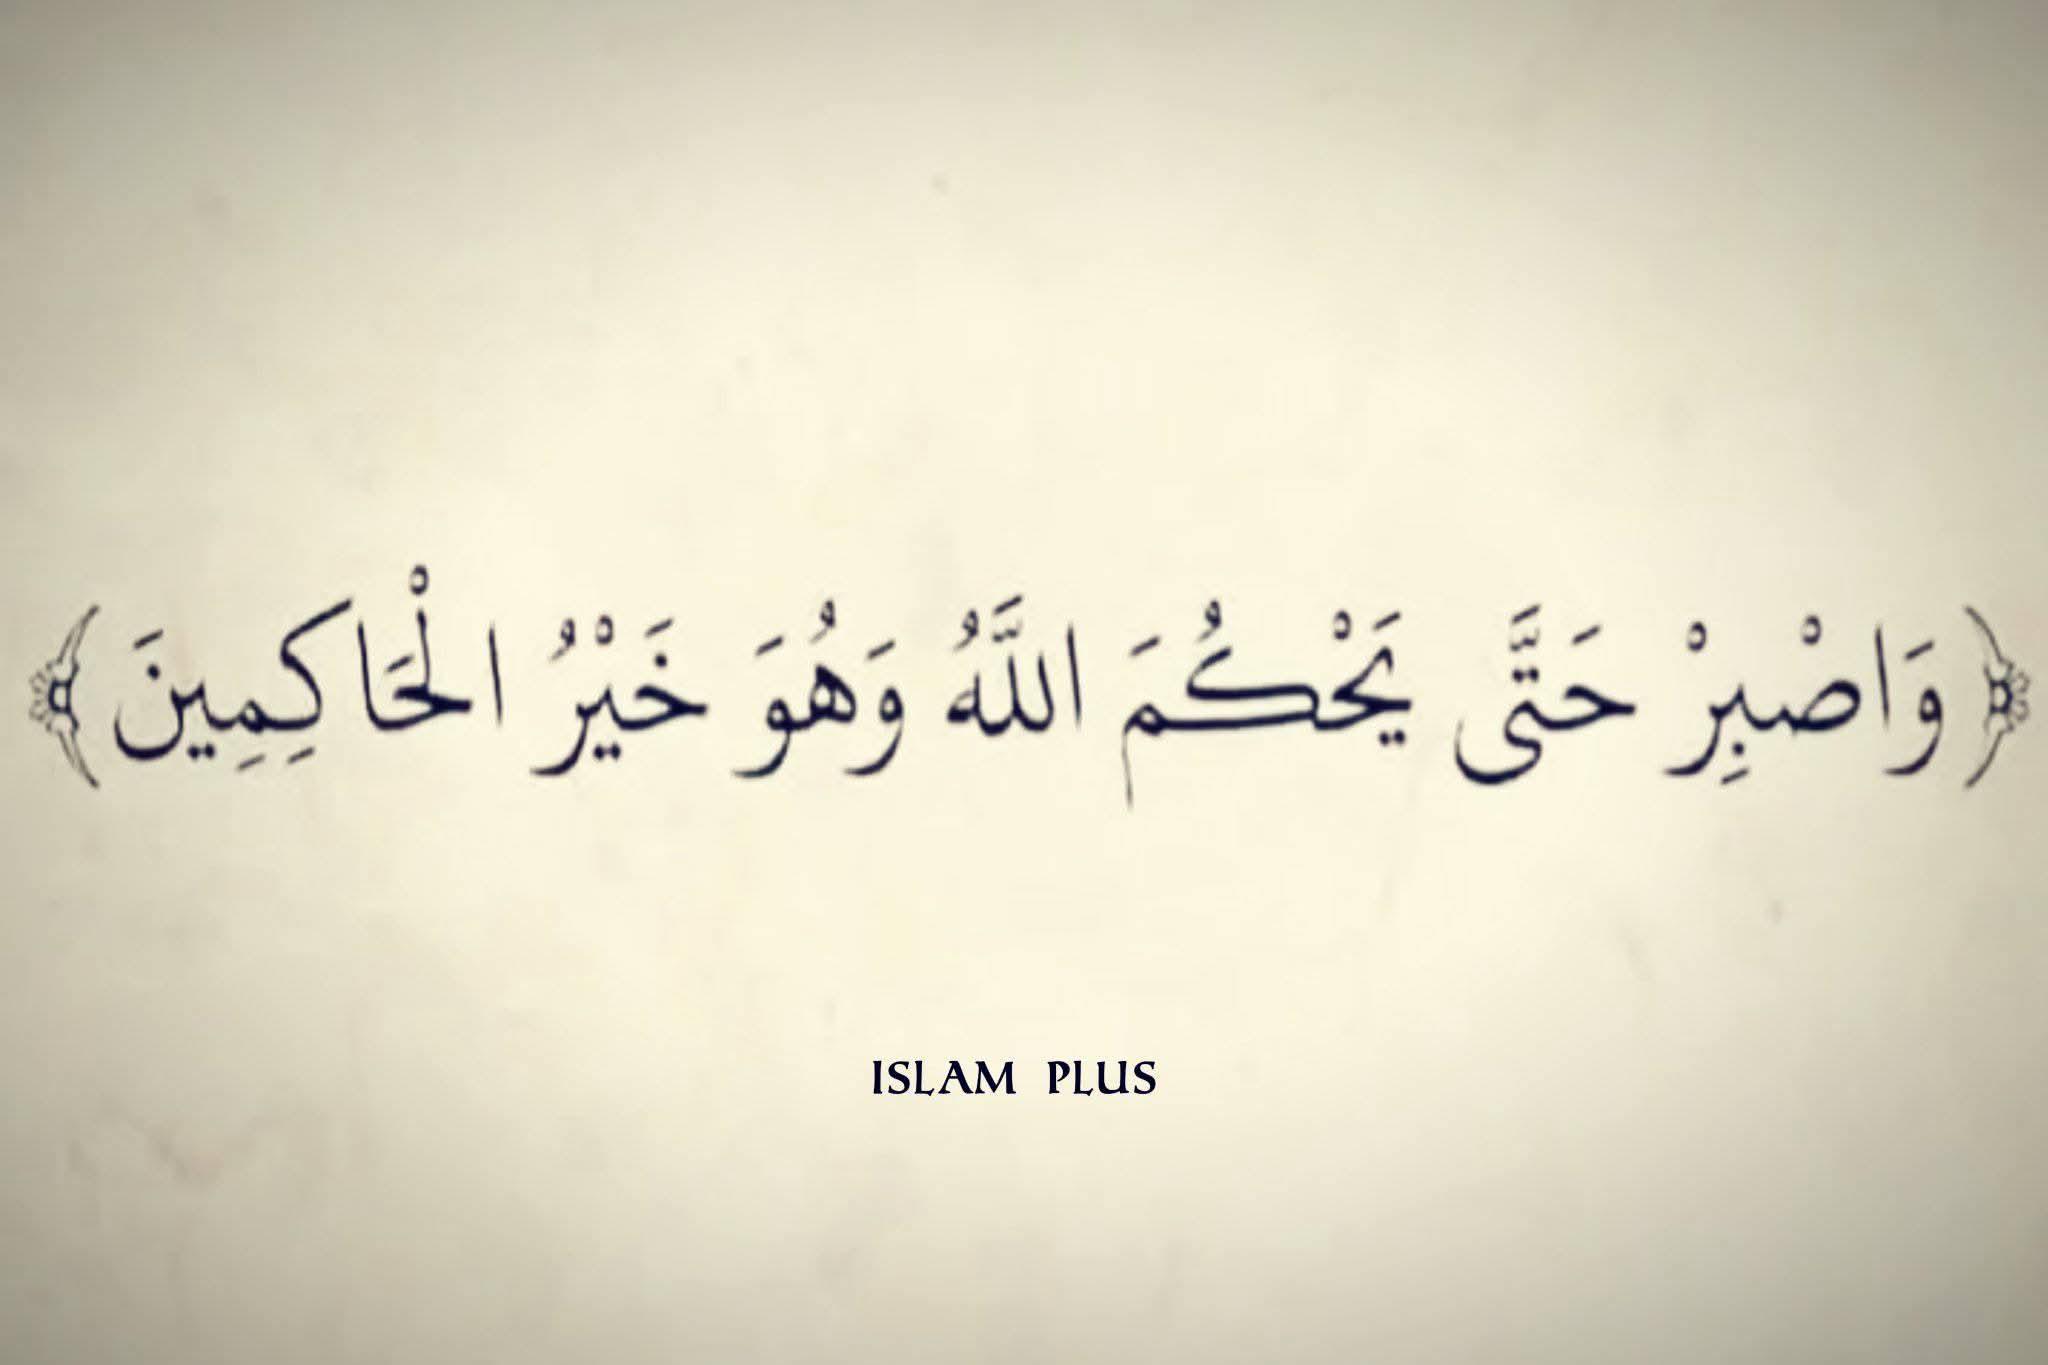 ﴿وَاصْبِرْ حَتَّى يَحْكُمَ اللَّهُ وَهُوَ خَيْرُ الْحَاكِمِينَ﴾
ISLAM PLUS